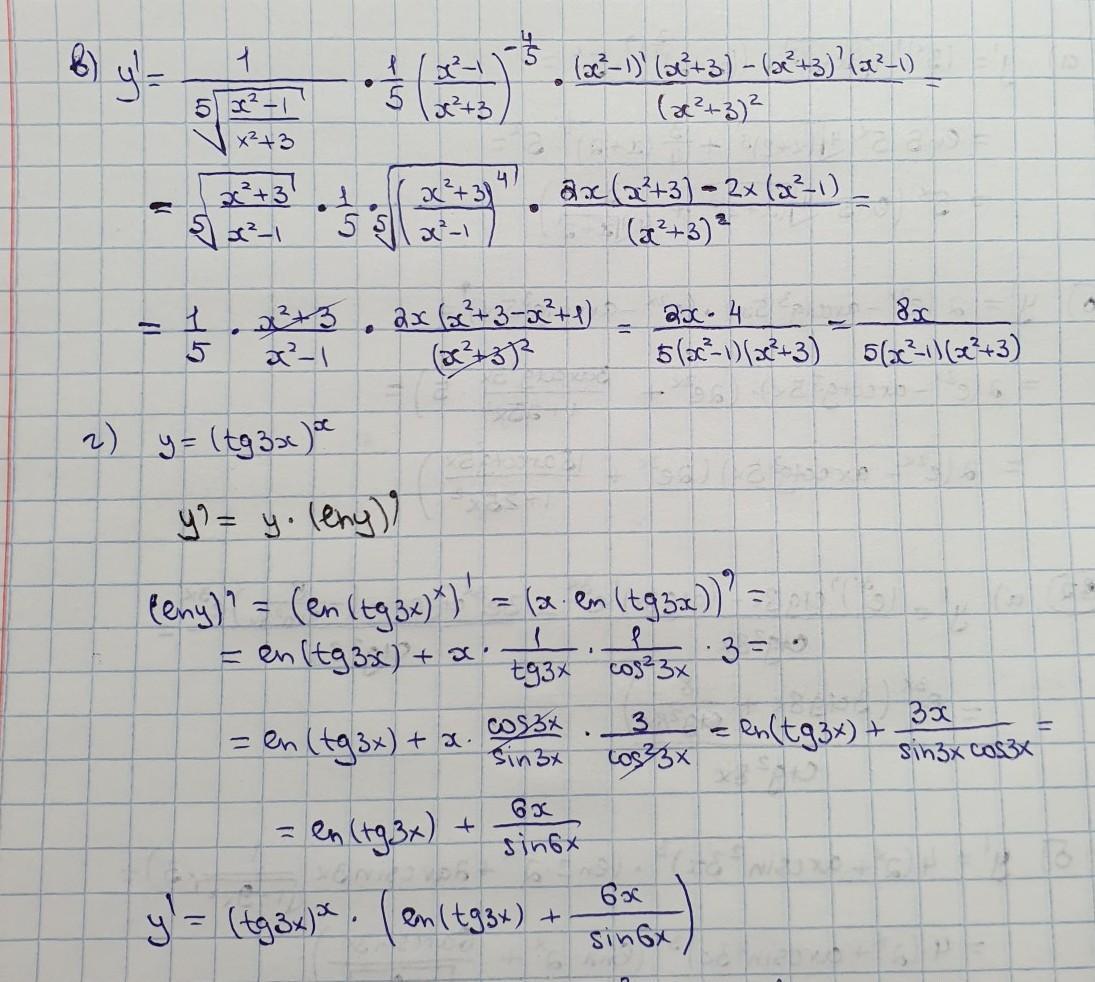 в) y' = \frac{1}{\sqrt[5]{\frac{x²-1}{x²+3}}} · \frac{1}{5} (\frac{x²-1}{x²+3})^{-\frac{4}{5}} · \frac{(x²-1)'(x²+3) - (x²+3)'(x²-1)}{(x²+3)²} =
= \sqrt[5]{\frac{x²+3}{x²-1}} · \frac{1}{5} · \sqrt[5]{(\frac{x²+3}{x²-1})^4} · \frac{2x(x²+3) - 2x(x²-1)}{(x²+3)²} =
= \frac{1}{5} · \frac{x²+3}{x²-1} · \frac{2x(x²+3-x²+1)}{(x²+3)²} = \frac{2x·4}{5(x²-1)(x²+3)} = \frac{8x}{5(x²-1)(x²+3)}
г) y = (tg3x)^x
y' = y · (lny)'
(lny)' = (ln(tg3x)^x)' = (x·ln(tg3x))' =
= ln(tg3x) + x · \frac{1}{tg3x} · \frac{1}{cos²3x} · 3 =
= ln(tg3x) + x · \frac{cos3x}{sin3x} · \frac{3}{cos²3x} = ln(tg3x) + \frac{3x}{sin3x cos3x} =
= ln(tg3x) + \frac{6x}{sin6x}
y' = (tg3x)^x · (ln(tg3x) + \frac{6x}{sin6x})